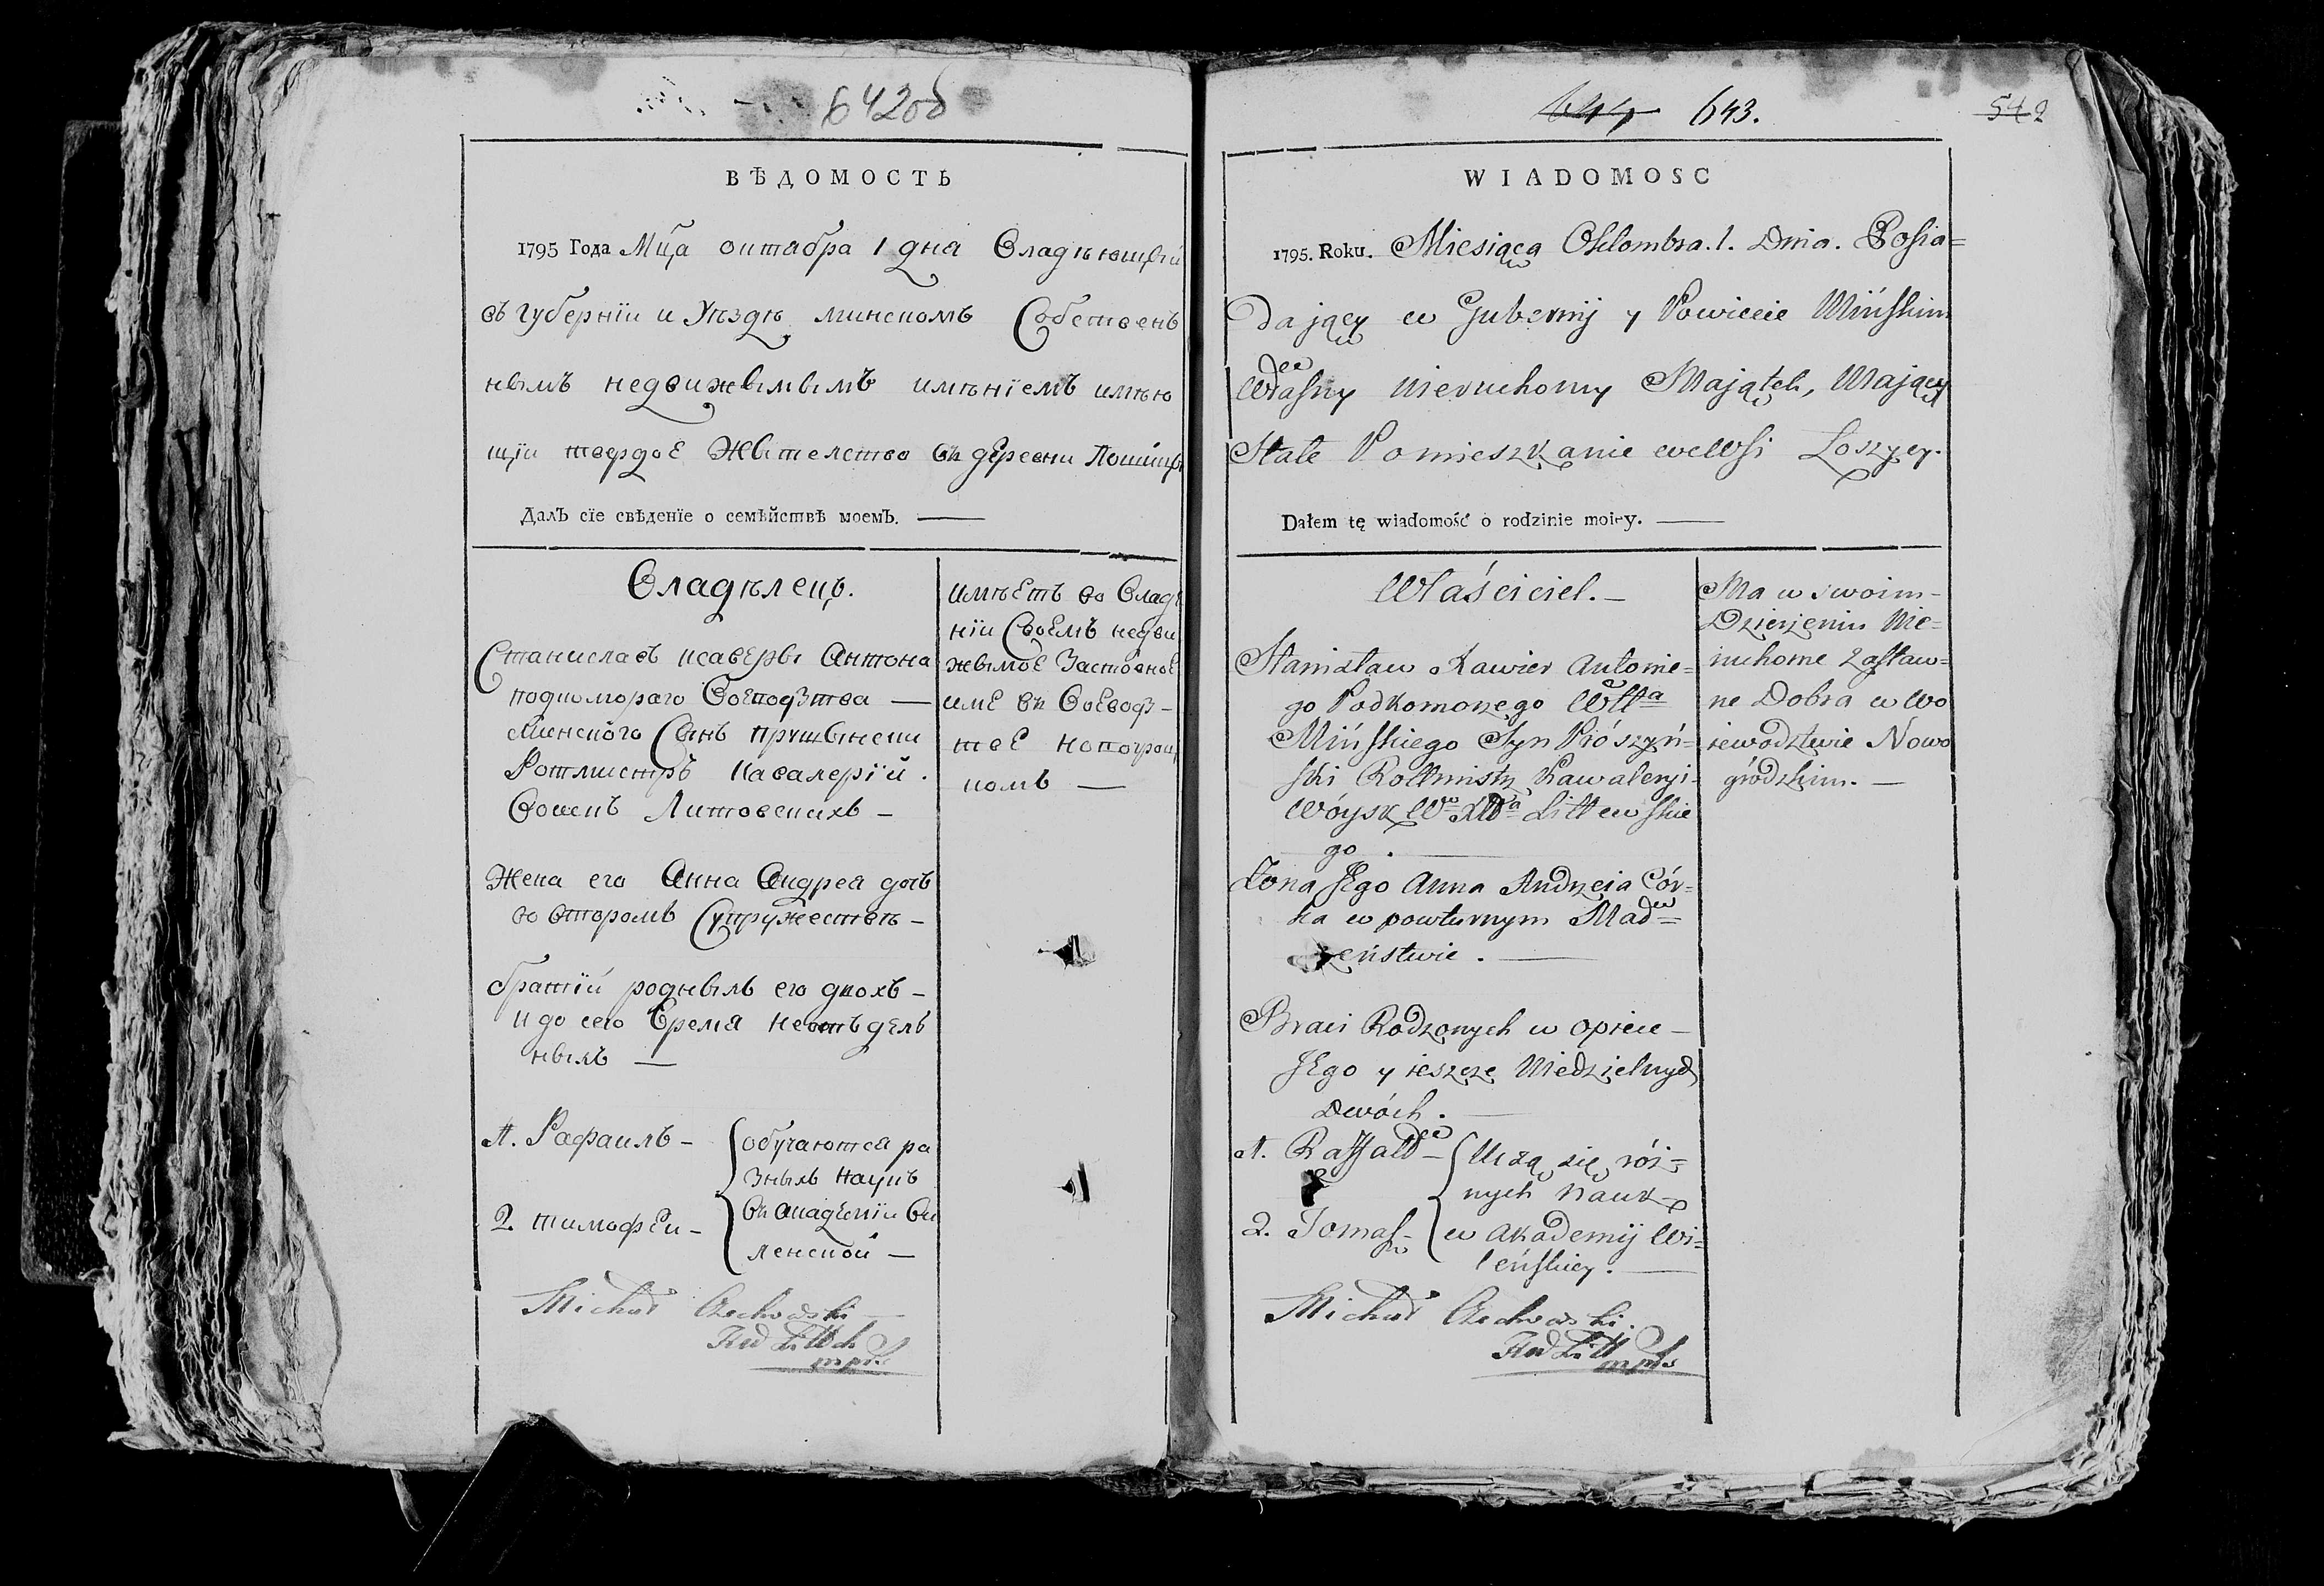 642об
ВѢДОМОСТЬ
1795 Года Мца октабра 1 дна Владѣющій
въ губерніи и Уѣздѣ минскомъ Собственъ
нымъ недвижымымъ имѣніемъ имѣю
щіи твердое Жытелство въ деревни Лошицы
Далъ сіе свѣденіе о семѣйствѣ моемъ.
Владѣлецъ.
Станиславъ ксаверы Антона
подкомораго Воеводзтва —
Минского Сынъ прушынски
Ротмистръ Кавалеріи.
Воискъ Литовскихъ —
Жена его Анна Андрея дочь
во второмъ Супружествѣ —
братіи родныхъ его двохъ —
и до сего Время неотъдель
ныхъ —
1. Рафаилъ —
обучаются ра
зныхъ наукъ
2 тимофеи —
въ Академіи Ви
ленской —
имѣетъ во Владѣ
ніи Своемъ недви
жымое Заставное
име въ Воеводз —
тве Новогрод
комъ —
Michał Czechowski
643. 542
WIADOMOSC
1795. Roku. Miesiąca Oktombra. 1. Dnia. Posia=
dający w Gubernij y Powiecie Mińskim
Własny Nieruchomy Maiątek, Maiący
Stałe Pomieszkanie we Wsi Łoszycy.
Dałem tę wiadomość o rodzinie moiey.
Właściciel. —
Stanisław Xawier Antonie=
go Podkomorzego Wttа
Mińskiego Syn Prószyń=
ski Rottmistrz Kawaleryi
Wóysk Wo XWa Littewskie
go.
Żona Jego Anna Andrzeia Cór=
ka w powturnym Mał=
żeństwie. —
Braci Rodzonych w opiece —
Jego y ieszcze Niedzielnych
Dwóch. —
1. Raffał —
Uczą się róż=
nych Nauk
2. Tomasz —
w Akademij Wi=
leńskiey. —
Ma w swoim —
Dzierżeniu Nie=
ruchome Zastaw=
ne Dobra w Wo
iewodztwie Nowo
gródzkim. —
Michał Czechowski.